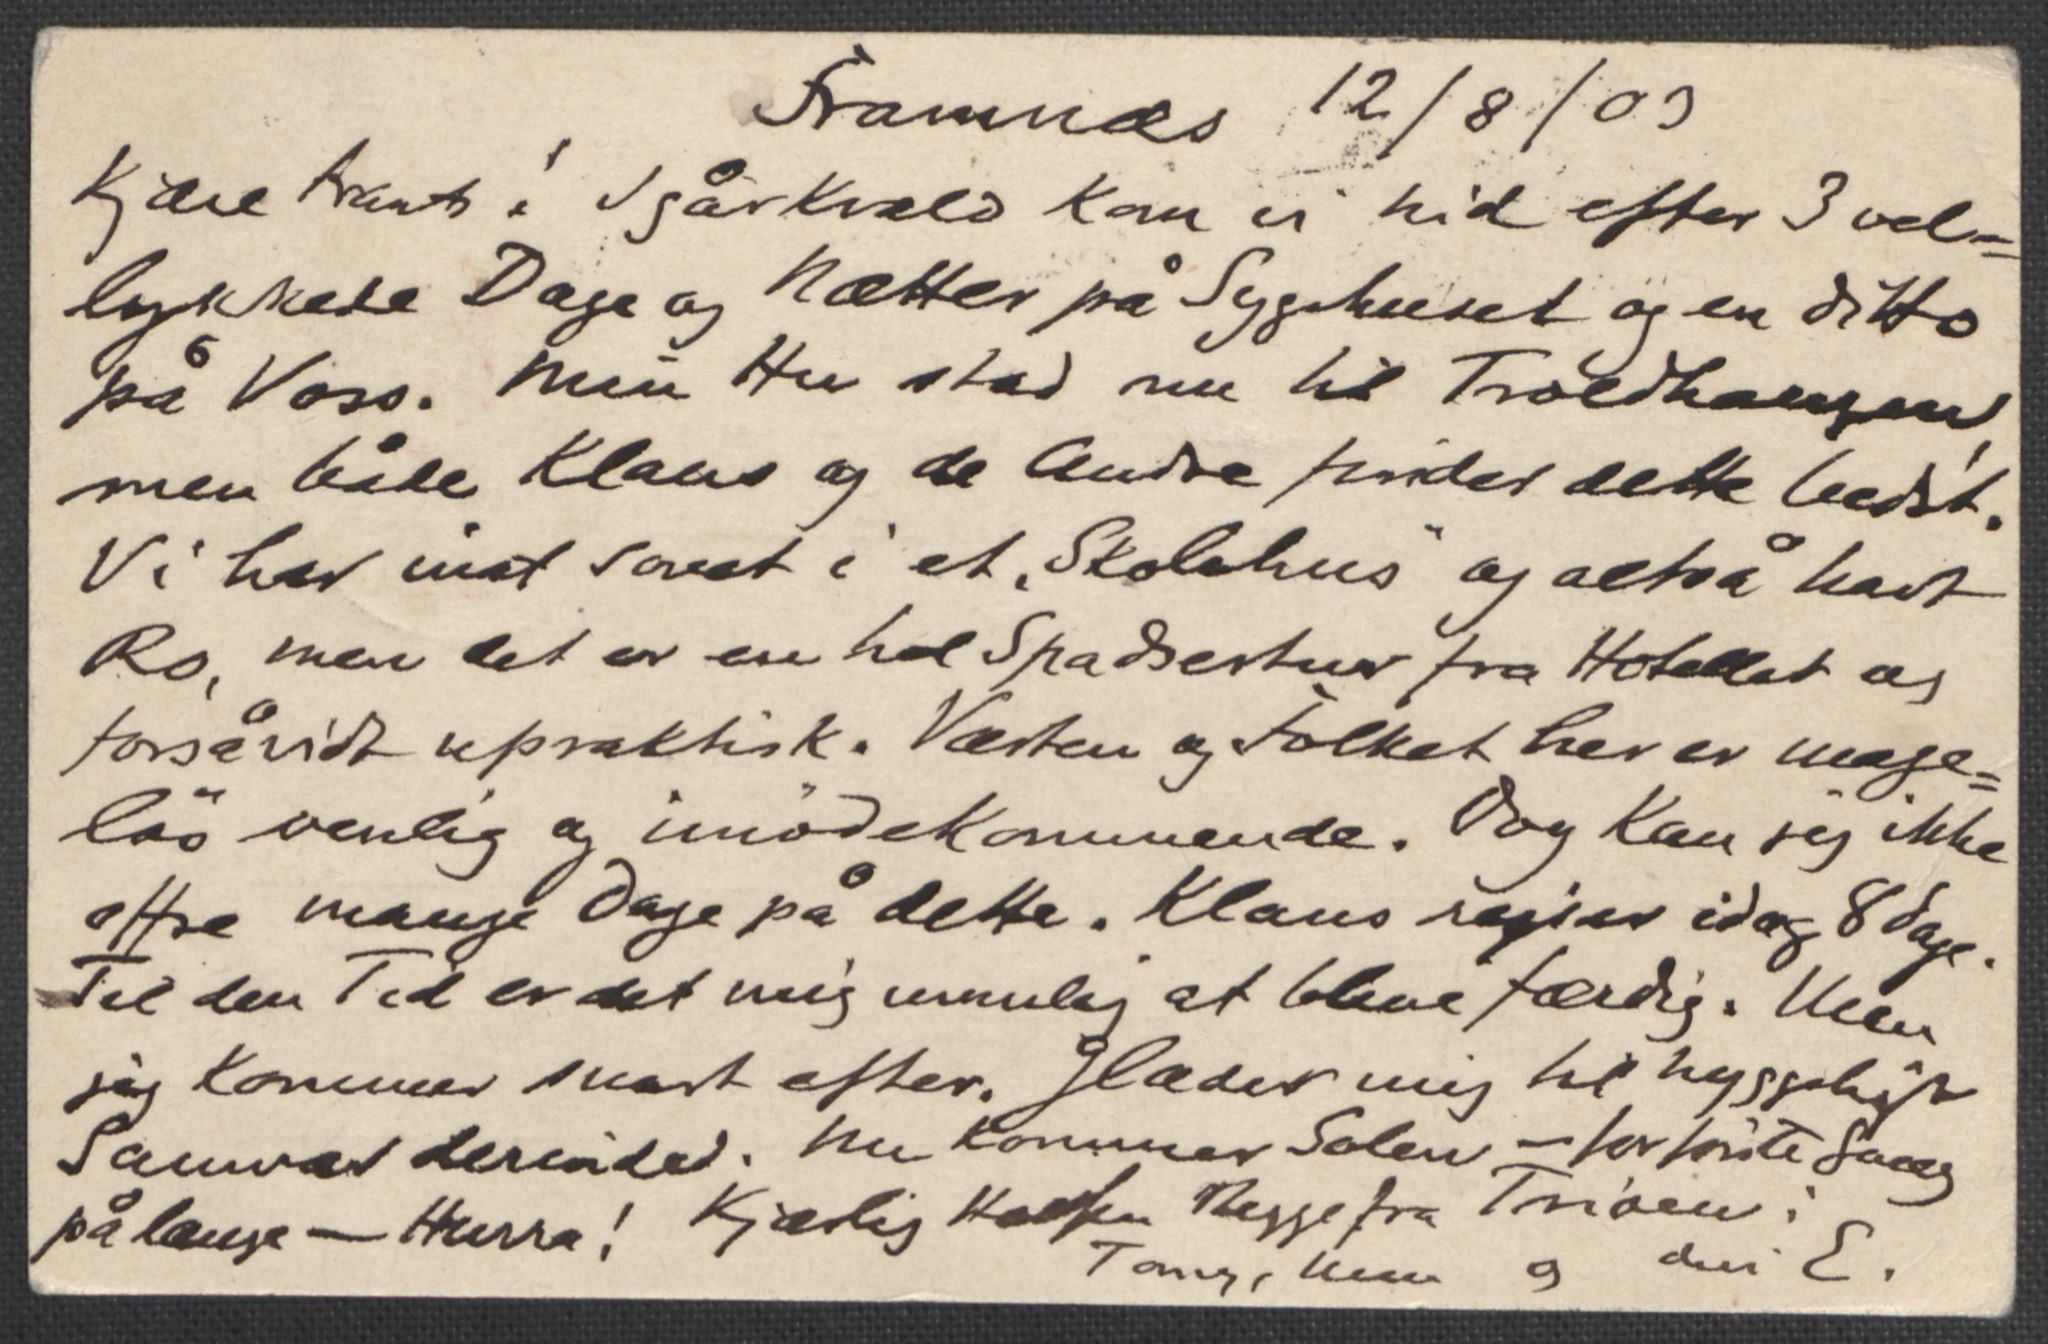 Framnæs 12/8/03
Kjære Frants! Igårkvæld kom vi hid efter 3 vel=
lykkede Dage og Nætter på Sygehuset og en ditto
på Voss. Min Hu stod nu til Troldhaugen,
men både Klaus og de Andre finder dette bedst.
Vi har inat sovet i et „Skolehus" og altså havt
Ro, men det er en hel Spadsertur fra Hotellet og
forsåvidt upraktisk. Værten og Folket her er mage=
lös venlig og imödekommende. Dog kan jeg ikke
offre mange Dage på dette. Klaus rejser idag 8 Dage.
Til den Tid er det mig umulig at blive færdig. Men
jeg kommer snart efter. Glæder mig til hyggeligt
Samvær derinde. Nu kommer Solen – for förste Gang
på længe – Hurra! Kjærlig Hilsen Begge fra Trioen:
Tony, Nina og din E.